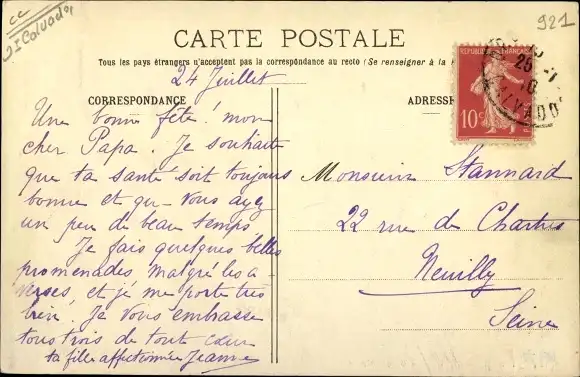 cc
Calvados
921
CARTE POSTALE
Tous les pays étrangers n'acceptent pas la correspondance au recto (Se renseigner à la
24 Juillet
CORRESPONDANCE
Une bonne fête! mon
cher Papa. Je souhaite
que ta santé soit toujours
bonne et qu- vous ayez
un peu de beau temps
Je fais quelques belles
promenades malgré les a-
verses, et je me porte très
bien. Je vous embrasse
tous trois de tout cœur
ta fille affectionnée Jeanne
ADRESSE
REPUBLIQUE FRANÇAISE
10c
Monsieur Stannard
22 rue de Chartres
Neuilly
Seine